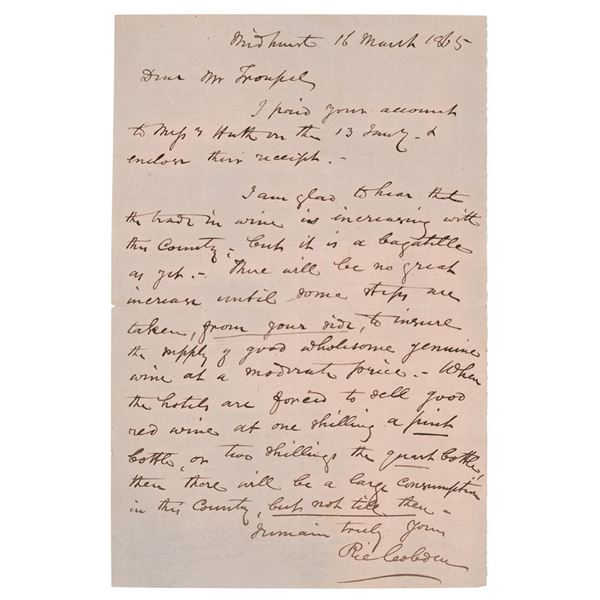 Midhurst 16 March 1865
Dear Mr
I paid your account
to Messrs Huth on the 13 Jany. &
enclose their receipt. -
I am glad to hear that
the trade in wine is increasing with
this Country, but it is a bagatelle
as yet. - There will be no great
increase until some steps are
taken, from your side, to insure
the supply of good wholesome genuine
wine at a moderate price. - When
the hotels are forced to sell good
red wine at one shilling a pint
bottle, or two shillings the quart bottle,
then there will be a large consumption
in this Country, but not till then -
I remain truly yours
Ric Cobden